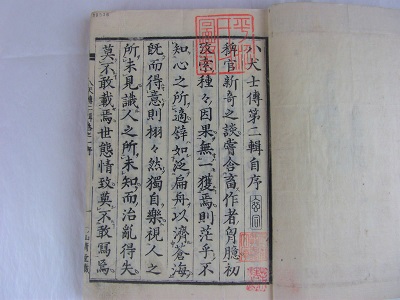 八犬士傳第二輯自序
稗官新奇之談嘗含畜作者胷臆初
攷索種々因果無一獲焉則茫乎不
知心之所適譬如泛扁舟以濟蒼海
既而得意則栩々然獨自樂視人之
所未見識人之所未知而治亂得失
莫不敢載焉世態情致莫不敢寫焉